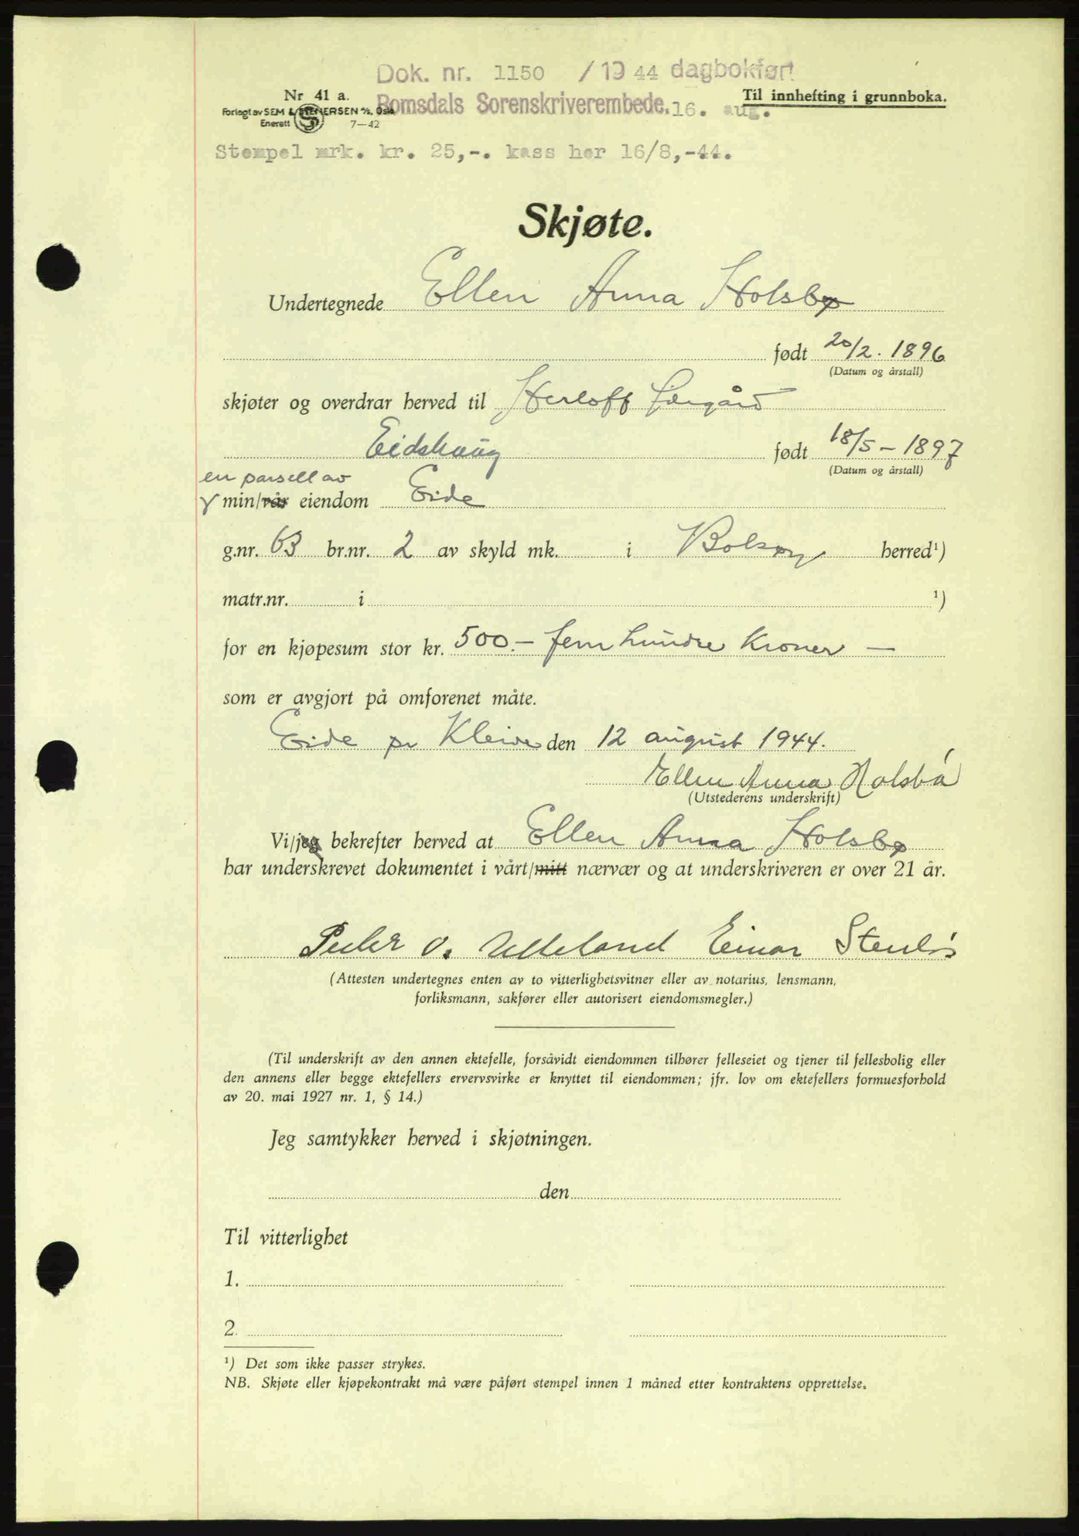 Dok. nr. 1150 / 1944 dagbokført
Nr 41 a.
Til innhefting i grunnboka.
Forlagt av SEM & STENERSEN A/S, Oslo
Romsdals Sorenskriverembede. 16. aug.
Enerett 7—42
Stempel mrk. kr. 25,-. kass her 16/8,-44.
Skjøte.
Undertegnede Ellen Anna Holsbø
født 20/2. 1896
(Datum og årstall)
skjøter og overdrar herved til Herloff
Eidshaug født 18/5 – 1897
(Datum og årstall)
en parsell av
min/vår eiendom Eide
g.nr. 63 br.nr. 2 av skyld mk. i Bolsøy herred¹)
matr.nr. i ¹)
for en kjøpesum stor kr. 500.— fem hundre kroner —
som er avgjort på omforenet måte.
Eide pr Kleive den 12 august 1944.
Ellen Anna Holsbø
(Utstederens underskrift)
Vi/jeg bekrefter herved at Ellen Anna Holsbø
har underskrevet dokumentet i vårt/mitt nærvær og at underskriveren er over 21 år.
Peder O. Einar
(Attesten undertegnes enten av to vitterlighetsvitner eller av notarius, lensmann,
forliksmann, sakfører eller autorisert eiendomsmegler.)
(Til underskrift av den annen ektefelle, forsåvidt eiendommen tilhører felleseiet og tjener til fellesbolig eller
den annens eller begge ektefellers ervervsvirke er knyttet til eiendommen; jfr. lov om ektefellers formuesforhold
av 20. mai 1927 nr. 1, § 14.)
Jeg samtykker herved i skjøtningen.
den
Til vitterlighet
1.
2
¹) Det som ikke passer strykes.
NB. Skjøte eller kjøpekontrakt må være påført stempel innen 1 måned etter kontraktens opprettelse.